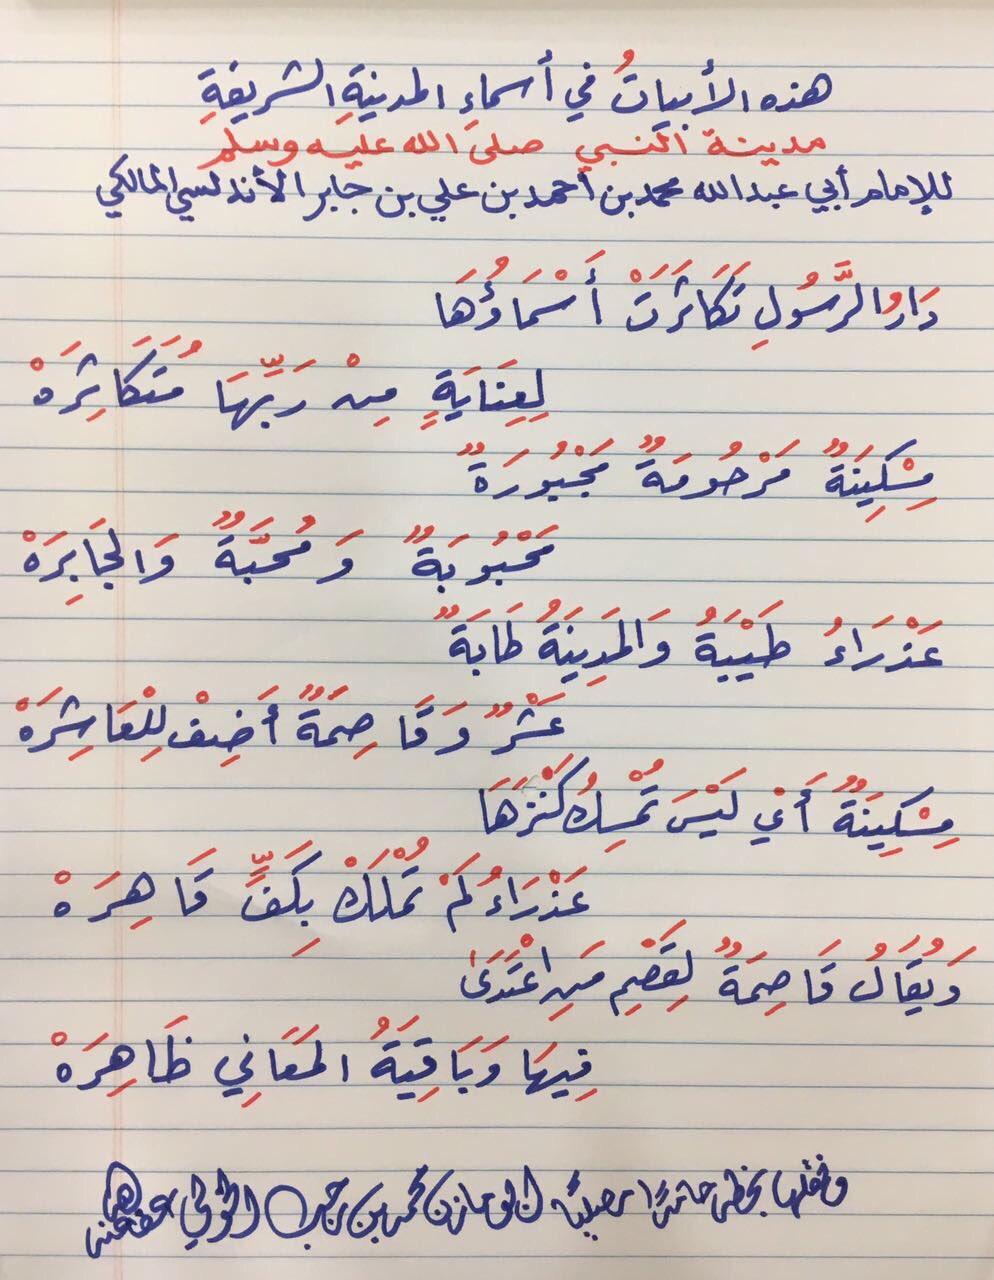 هذه الأبياتُ في أسماءِ المدينةِ الشريفةِ
مدينة النبي صلى الله عليه وسلم
للإمام أبي عبد الله محمد بن أحمد بن علي بن جابر الأندلسي المالكي
دَارُ الرَّسُولِ تَكَاثَرَتْ أَسْمَاؤُهَا
لِعِنَايَةٍ مِنْ رَبِّهَا مُتَكَاثِرَهْ
مِسْكِينَةٌ مَرْحُومَةٌ مَجْبُورَةٌ
مَحْبُوبَةٌ وَمُحَبَّةٌ وَالجَابِرَهْ
عَذْرَاءُ طَيْبَةُ وَالمَدِينَةُ طَابَةٌ
عَشْرٌ وَقَاصِمَةٌ أَضِفْ لِلْعَاشِرَهْ
مِسْكِينَةٌ أَيْ لَيْسَ تُمْسِكُ كَنْزَهَا
عَذْرَاءُ لَمْ تُمْلَكْ بِكَفٍّ قَاهِرَهْ
وَيُقَالُ قَاصِمَةٌ لِقَصْمِ مَنِ اعْتَدَىٰ
فِيهَا وَبَاقِيَةُ المَعَانِي ظَاهِرَهْ
محمد بن رجب